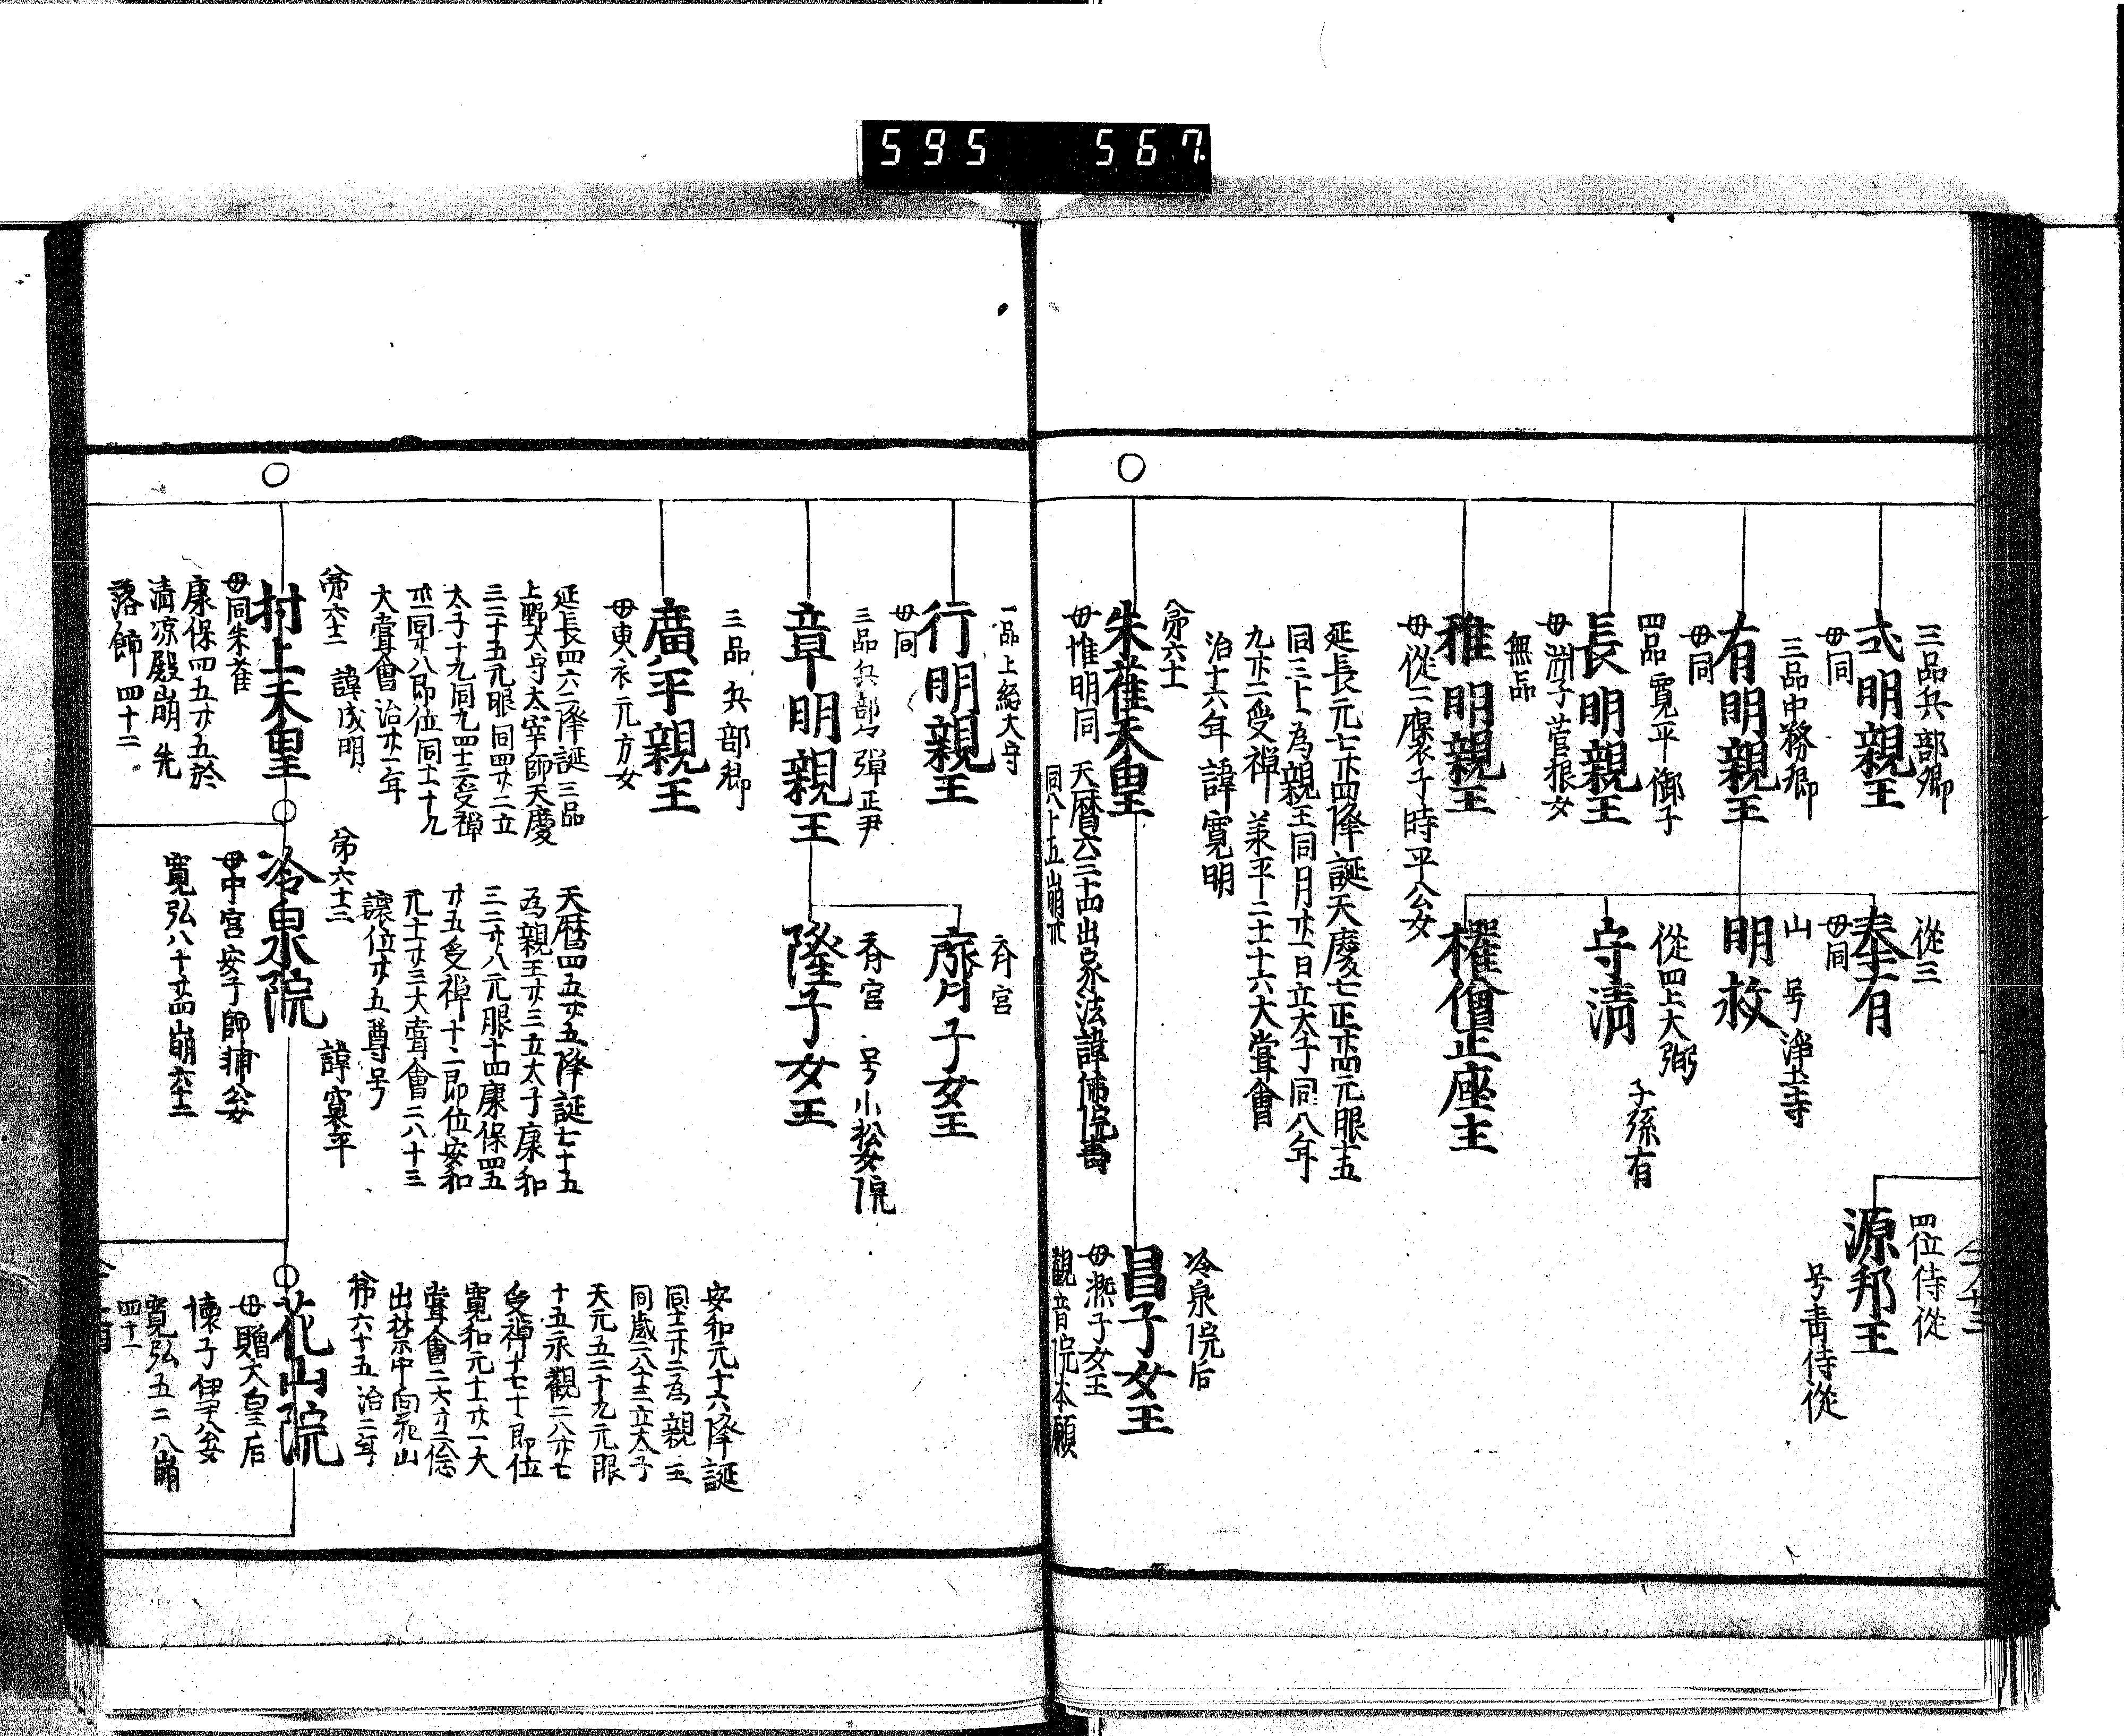 595 567
三品兵部卿
式明親王
母同
三品中務卿
有明親王
母同
四品 寛平御子
長明親王
母淑子菅根女
無品
雅明親王
母從二褒子時平公女
從三
奉有
母同
山 号浄土寺
明救
從四上大弼
守清
子孫有
權僧正座主
四位侍從
源邦王
号青侍從
延長元七廿四降誕天慶七正廿四元服十五
同三十一為親王同月廿一日立太子同八年
九廿二受禅 承平二十十六大嘗會
治十六年 諱寛明
第六十一
朱雀天皇
母惟明同
天暦六三十四出家法諱佛陀壽
同八十五崩卅
冷泉院后
昌子女王
母凞子女王
觀音院本願
一品上総大守
行明親王
母同
三品兵部々弾正尹
章明親王
三品兵部卿
廣平親王
母東衣元方女
斉宮
齊子女王
斉宮 号小松女院
隆子女王
延長四六二降誕三品
上野大守太宰師天慶
三二十五元服同四廿二立
太子十九同九四十三受禅
廿一同廿八即位同十一十九
大嘗會治廿一年
第六十二 諱成明
村上天皇
母同朱雀
康保四五廿五於
清凉殿崩先
落飾四十二
天暦四五廿五降誕七十五
為親王廿三立太子康和
三二廿八元服十四康保四五
廿五受禅十二即位安和
元十一廿三大嘗會二八十三
讓位廿五尊号
第六十三
諱憲平
冷泉院
母中宮安子師輔公女
寛弘八十廿四崩六十二
安和元十六降誕
同十一廿二為親王
同歳二八十三立太子
天元五二十九元服
十五永觀二八廿七
受禅十七十即位
寛和元十一廿一大
嘗會二六廿三恣
出禁中向花山
第六十五 治三年
花山院
母贈大皇后
懐子伊尹公女
寛弘五二八崩
四十一